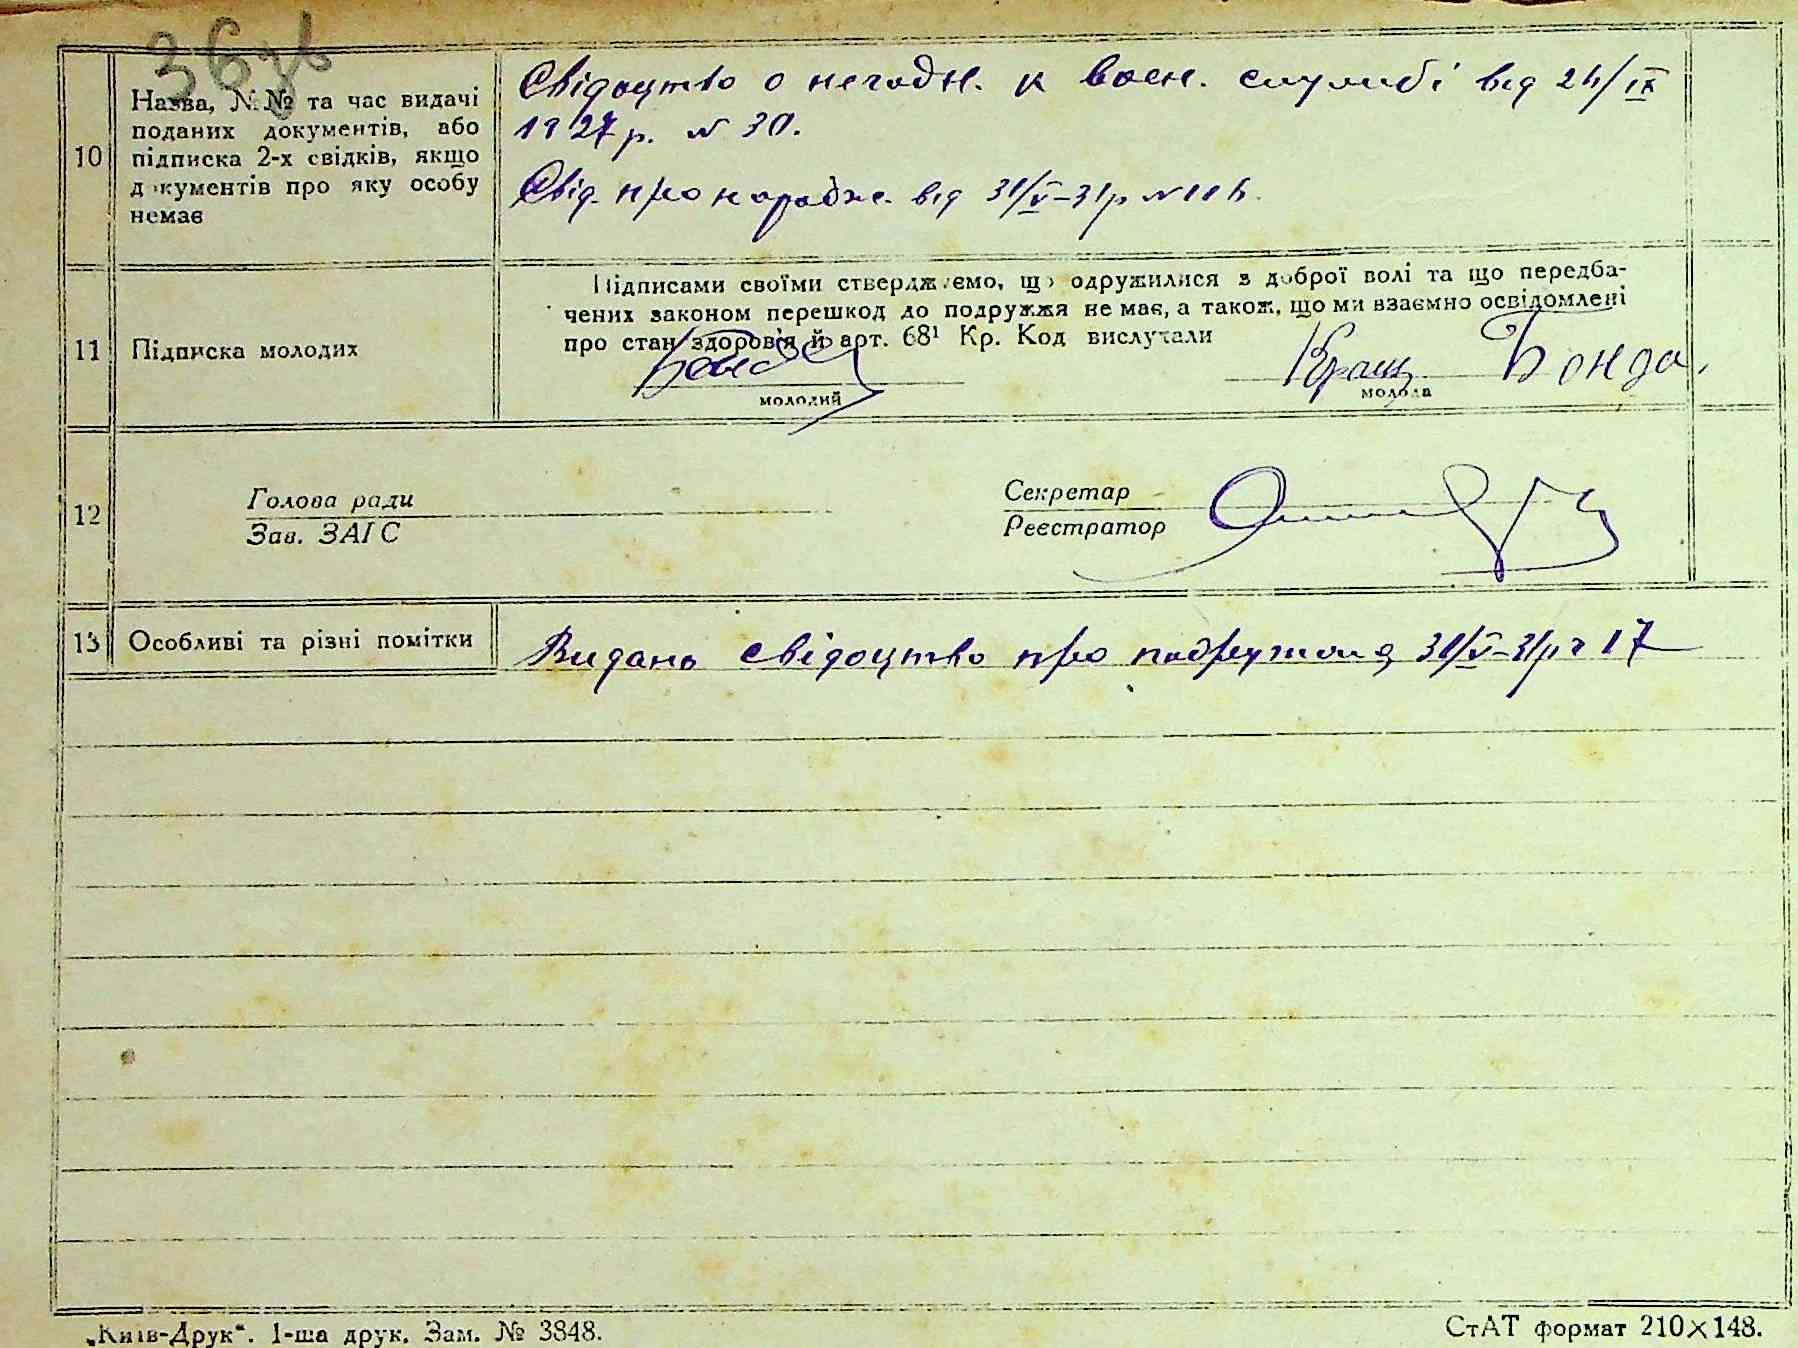 36 зв
10
Назва, №№ та час видачі
поданих документів, або
підписка 2-х свідків, якщо
документів про яку особу
немає
Свідоцтво о негодн. к воєн. службі від 24/IX
1927 р. № 30.
Свід. про нарадже. від 31/V-31р №
11
Підписка молодих
Підписами своїми стверджуємо, що одружилися з доброї волі та що передба-
чених законом перешкод до подружжя не має, а також, що ми взаємно освідомлені
про стан здоров'я й арт. 68¹ Кр. Код вислухали
Бонда.
молодий
молода
12
Голова ради
Зав. ЗАГС
Секретар
Реєстратор
13
Особливі та різні помітки
Видано свідоцтво про 31/V-31р № 17
„Київ-Друк“. 1-ша друк. Зам. № 3848.
СтАТ формат 210×148.